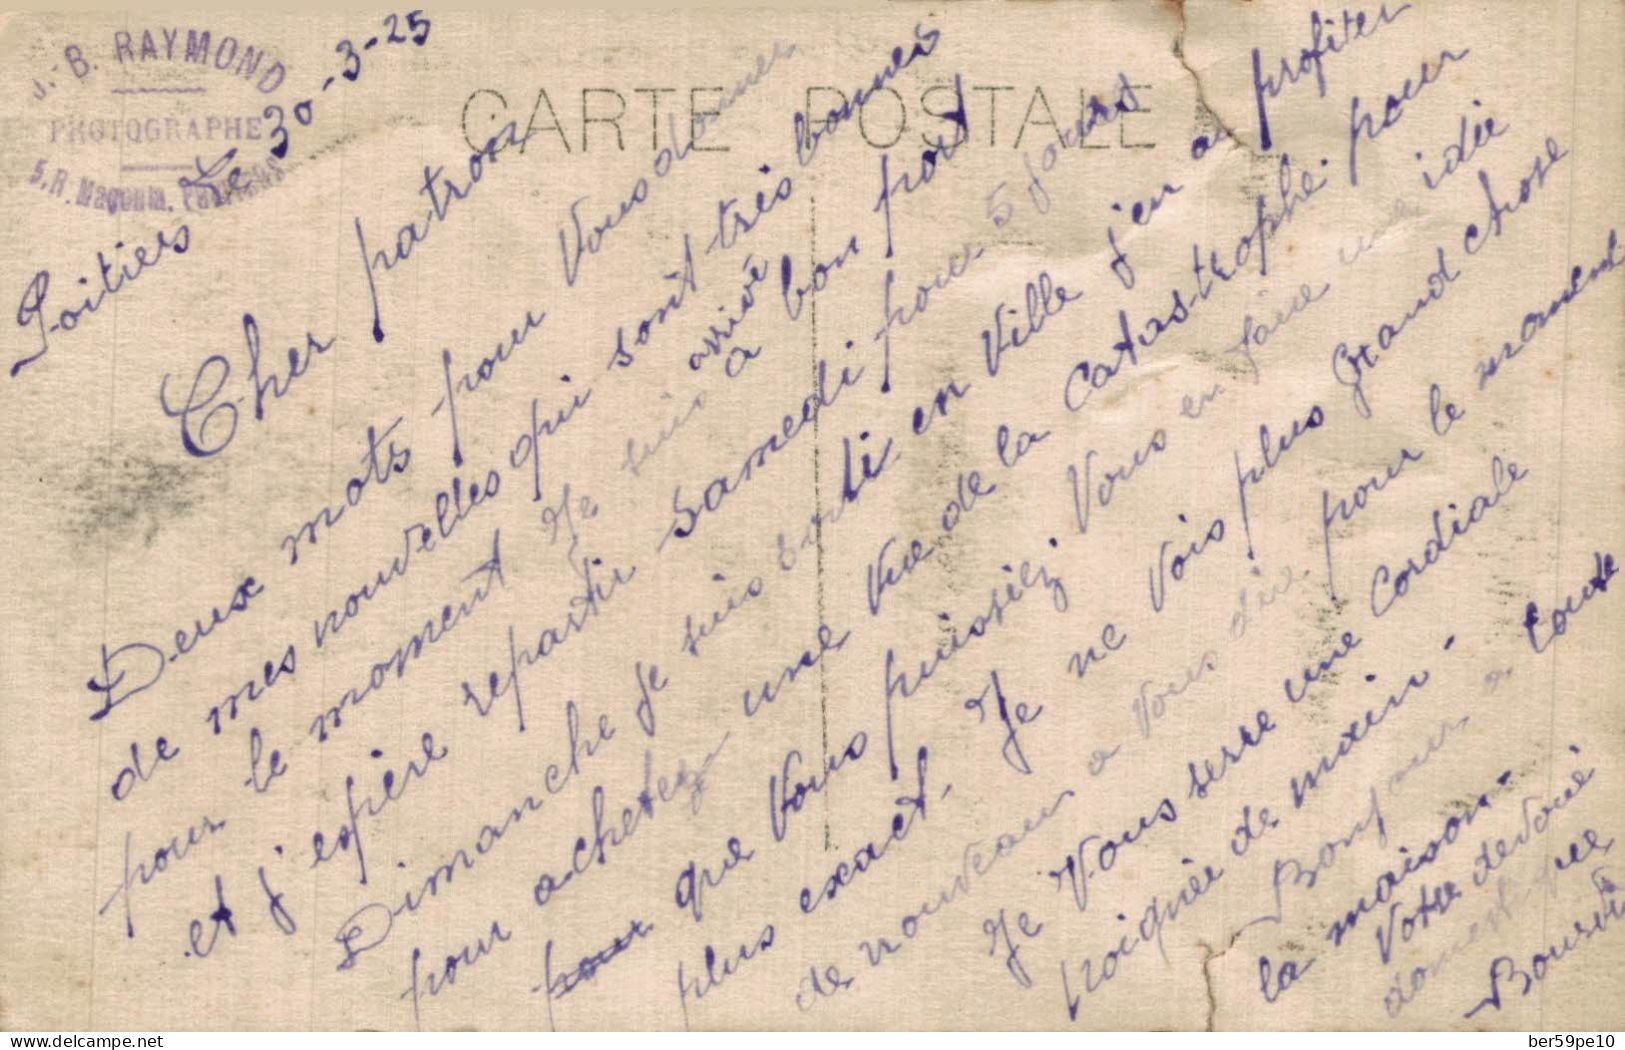 J.-B. RAYMOND
PHOTOGRAPHE
5, R. Magenta,
CARTE POSTALE
Poitiers le 30-3-25
Cher patron
Deux mots pour vous donner
de mes nouvelles qui sont très bonnes
pour le moment Je suis arrivé a bon port
et j'espère repartir samedi pour 5 jours
Dimanche je suis sorti en ville j'en ai profiter
pour achetez une vue de la Catastrophe pour
pour que vous puissiez vous en faire une idée
plus exact. Je ne vois plus grand chose
de nouveau a vous dire pour le moment
Je vous serre une Cordiale
poignée de main -
Bonjour a toute
la maison -
Votre devoué
domestique
www.delcampe.net
ber59pe10